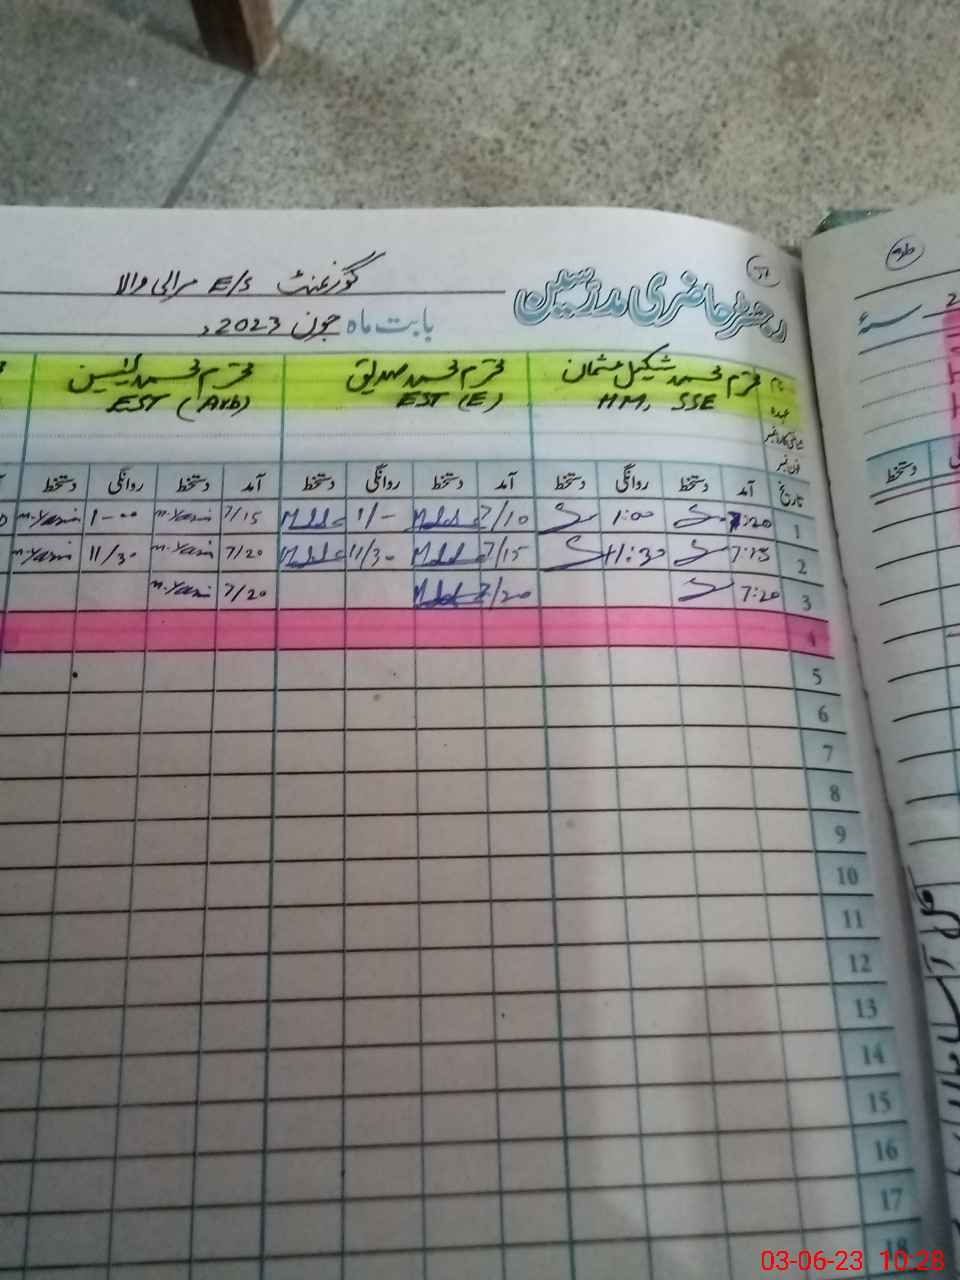 رجسٹر حاضری مدرسین
گورنمنٹ E/S مرالی والا
بابت ماہ جون 2023ء
نام محترم محمد شکیل عثمان محترم محمد صدیق محترم محمد یٰسین
عہدہ HM, SSE EST (E) EST (Arb)
فون نمبر
تاریخ آمد دستخط روانگی دستخط آمد دستخط روانگی دستخط آمد دستخط روانگی دستخط
1 7:20 1:00 7/10 1/- 7/15 M. Yasin 1-00 M. Yasin
2 7:15 11:30 7/15 11/30 7/20 M. Yasin 11/30 M. Yasin
3 7:20 7/20 7/20 M. Yasin
4
5
6
7
8
9
10
11
12
13
14
15
16
17
18
دستخط
03-06-23 10:28